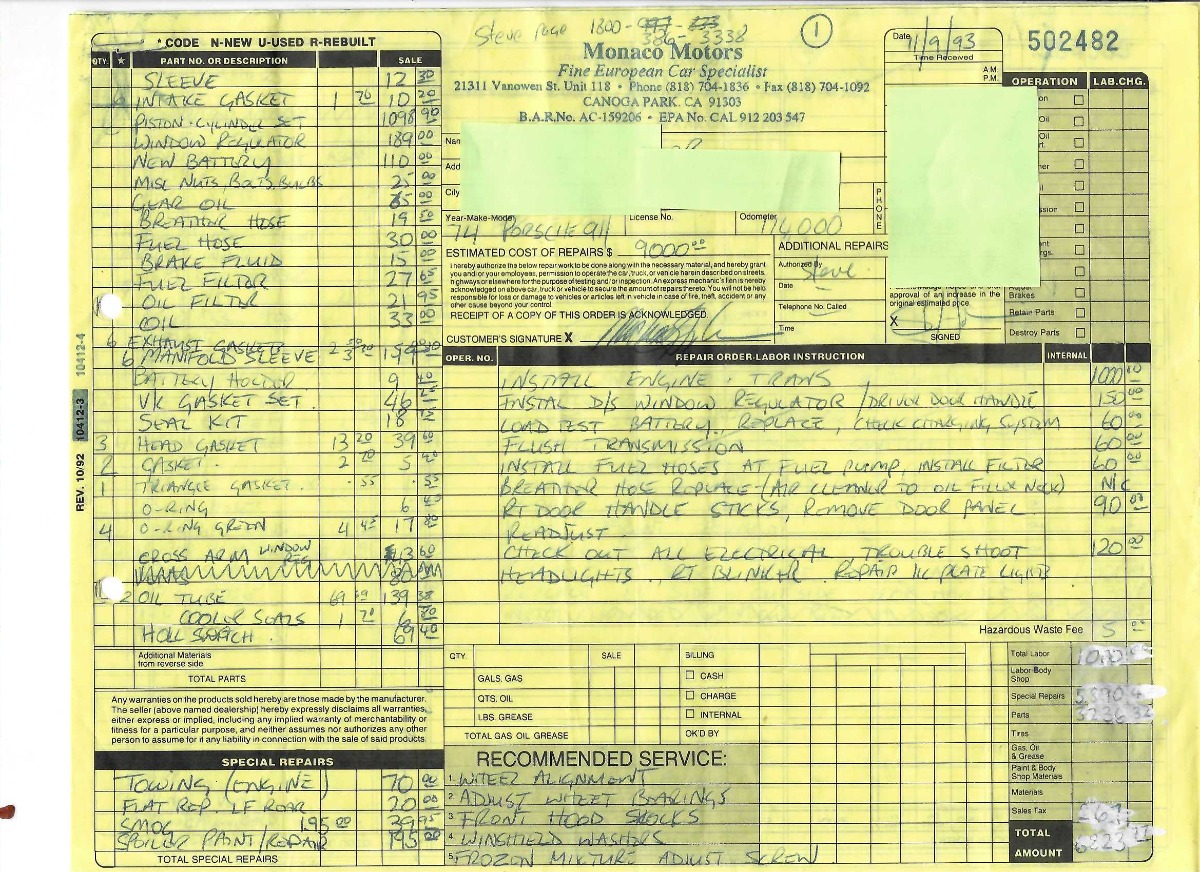 Steve Page 1800-
386-3338
1
Monaco Motors
Fine European Car Specialist
21311 Vanowen St. Unit 118 • Phone (818) 704-1836 • Fax (818) 704-1092
CANOGA PARK, CA 91303
B.A.R.No. AC-159206 • EPA No. CAL 912 203 547
Date 11/9/93
Time Received
A.M.
P.M.
502482
* CODE N-NEW U-USED R-REBUILT
QTY. * PART NO. OR DESCRIPTION SALE
SLEEVE 12 30
6 INTAKE GASKET 1 70 10 20
PISTON-CYLINDER SET 1098 90
WINDOW REGULATOR 189 00
NEW BATTERY 110 00
MISL NUTS, BOLTS, BULBS 25 00
GEAR OIL 00
BREATHER HOSE 19 50
FUEL HOSE 30 00
BRAKE FLUID 15 00
FUEL FILTER 27 65
OIL FILTER 21 95
OIL 33 00
6 EXHAUST GASKETS
6 MANIFOLD SLEEVE
BATTERY HOLDER 9
VK GASKET SET 46
SEAL KIT 18
3 HEAD GASKET 13 20 39 60
2 GASKET 2 70 5 40
1 TRIANGLE GASKET .55 .55
O-RING 6
4 O-RING GREEN 4 45 17 80
CROSS ARM WINDOW REG 60
2 OIL TUBE 69 69 139 38
COOLER SEALS 1 70 6 80
69 40
Additional Materials
from reverse side
TOTAL PARTS
REV. 10/92 10412-3 10412-4
Any warranties on the products sold hereby are those made by the manufacturer.
The seller (above named dealership) hereby expressly disclaims all warranties,
either express or implied, including any implied warranty of merchantability or
fitness for a particular purpose, and neither assumes nor authorizes any other
person to assume for it any liability in connection with the sale of said products.
SPECIAL REPAIRS
TOWING (ENGINE) 70 00
FLAT REP. LF ROAR 20 00
SMOG 195 00 29 95
SPOILER PAINT/REPAIR 195 00
TOTAL SPECIAL REPAIRS
Nam
Add
City
PHONE
Year-Make-Model License No. Odometer
74 PORSCHE 911 114000
ESTIMATED COST OF REPAIRS $ 9000 00
I hereby authorize the below repair work to be done along with the necessary material, and hereby grant
you and/or your employees, permission to operate the car, truck, or vehicle herein described on streets,
highways or elsewhere for the purpose of testing and/or inspection. An express mechanic's lien is hereby
acknowledged on above car, truck or vehicle to secure the amount of repairs thereto. You will not be held
responsible for loss or damage to vehicles or articles left in vehicle in case of fire, theft, accident or any
other cause beyond your control.
RECEIPT OF A COPY OF THIS ORDER IS ACKNOWLEDGED
CUSTOMER'S SIGNATURE X
ADDITIONAL REPAIRS
Authorized By
Steve
Date
Telephone No. Called
Time
approval of an increase in the
original estimated price.
X
SIGNED
OPERATION LAB.CHG.
Adjust
Brakes
Retain Parts
Destroy Parts
OPER. NO. REPAIR ORDER-LABOR INSTRUCTION INTERNAL
INSTALL ENGINE - TRANS 1000
INSTAL D/S WINDOW REGULATOR / DRIVER DOOR HANDLE 150
LOAD TEST BATTERY, REPLACE, CHECK CHARGING SYSTEM 60
FLUSH TRANSMISSION 60
INSTALL FUEL HOSES AT FUEL PUMP, INSTALL FILTER 60
BREATHER HOSE REPLACE-(AIR CLEANER TO OIL FILLER NECK) N/C
RT DOOR HANDLE STICKS, REMOVE DOOR PANEL 90
READJUST
CHECK OUT ALL ELECTRICAL, TROUBLE SHOOT 120
HEADLIGHTS, RT BLINKER, REPAIR LIC PLATE LIGHTS
Hazardous Waste Fee 5
QTY. SALE BILLING
GALS. GAS CASH
QTS. OIL CHARGE
LBS GREASE INTERNAL
TOTAL GAS OIL GREASE OK'D BY
Total Labor
Labor Body
Shop
Special Repairs
Parts
Tires
Gas, Oil
& Grease
Paint & Body
Shop Materials
Materials
Sales Tax
TOTAL
AMOUNT
RECOMMENDED SERVICE:
1. WHEEL ALIGNMENT
2. ADJUST WHEEL BEARINGS
3. FRONT HOOD SHOCKS
4. WINSHIELD WASHERS
5. FROZEN MIXTURE ADJUST SCREW